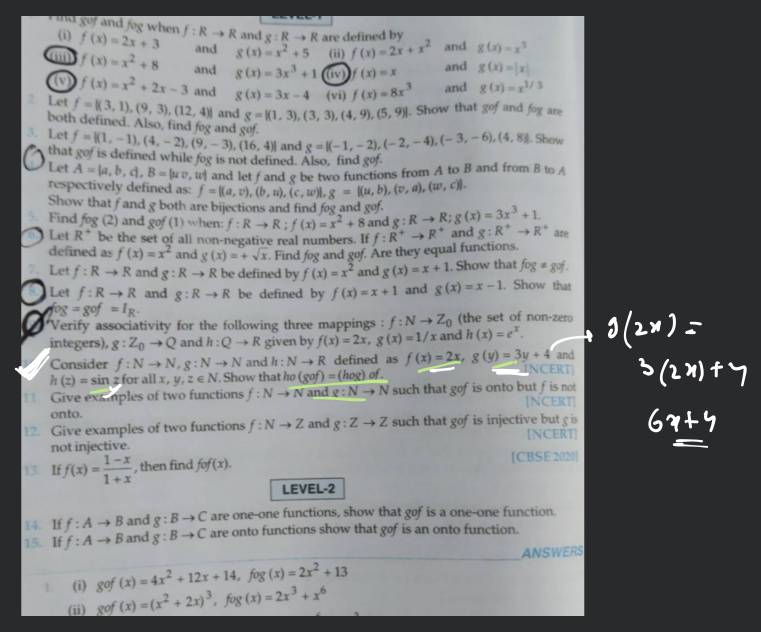 LEVEL-1
find gof and fog when f : R → R and g : R → R are defined by
(i) f (x) = 2x + 3 and g (x) = x² + 5 (ii) f (x) = 2x + x² and g (x) = x³
(iii) f (x) = x² + 8 and g (x) = 3x³ + 1 (iv) f (x) = x and g (x) = |x|
(v) f (x) = x² + 2x − 3 and g (x) = 3x − 4 (vi) f (x) = 8x³ and g (x) = x^{1/3}
2. Let f = {(3, 1), (9, 3), (12, 4)} and g = {(1, 3), (3, 3), (4, 9), (5, 9)}. Show that gof and fog are
both defined. Also, find fog and gof.
3. Let f = {(1, −1), (4, −2), (9, −3), (16, 4)} and g = {(−1, −2), (−2, −4), (−3, −6), (4, 8)}. Show
that gof is defined while fog is not defined. Also, find gof.
Let A = {a, b, c}, B = {u v, w} and let f and g be two functions from A to B and from B to A
respectively defined as: f = {(a, v), (b, u), (c, w)}, g = {(u, b), (v, a), (w, c)}.
Show that f and g both are bijections and find fog and gof.
5. Find fog (2) and gof (1) when: f : R → R ; f (x) = x² + 8 and g : R → R; g (x) = 3x³ + 1.
6. Let R⁺ be the set of all non-negative real numbers. If f : R⁺ → R⁺ and g : R⁺ → R⁺ are
defined as f (x) = x² and g (x) = + √x. Find fog and gof. Are they equal functions.
7. Let f : R → R and g : R → R be defined by f (x) = x² and g (x) = x + 1. Show that fog ≠ gof.
8. Let f : R → R and g : R → R be defined by f (x) = x + 1 and g (x) = x − 1. Show that
fog = gof = I_R.
Verify associativity for the following three mappings : f : N → Z₀ (the set of non-zero
integers), g : Z₀ → Q and h : Q → R given by f(x) = 2x, g (x) = 1/x and h (x) = eˣ.
Consider f : N → N, g : N → N and h : N → R defined as f (x) = 2x, g (y) = 3y + 4 and
h (z) = sin z for all x, y, z ∈ N. Show that ho (gof) = (hog) of. [NCERT]
11. Give examples of two functions f : N → N and g : N → N such that gof is onto but f is not
onto. [NCERT]
12. Give examples of two functions f : N → Z and g : Z → Z such that gof is injective but g is
not injective. [NCERT]
13. If f(x) = (1−x)/(1+x), then find fof(x). [CBSE 2020]
LEVEL-2
14. If f : A → B and g : B → C are one-one functions, show that gof is a one-one function.
15. If f : A → B and g : B → C are onto functions show that gof is an onto function.
ANSWERS
1. (i) gof (x) = 4x² + 12x + 14, fog (x) = 2x² + 13
(ii) gof (x) = (x² + 2x)³, fog (x) = 2x³ + x⁶
g(2x) =
3(2x)+4
6x+4